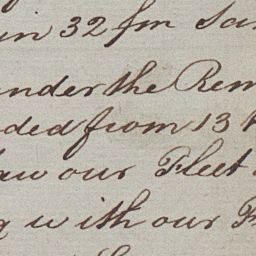 in 32 fm Sa
under the Rem
ded from 13
aw our Fleet
with our F